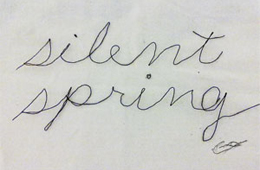 silent
spring